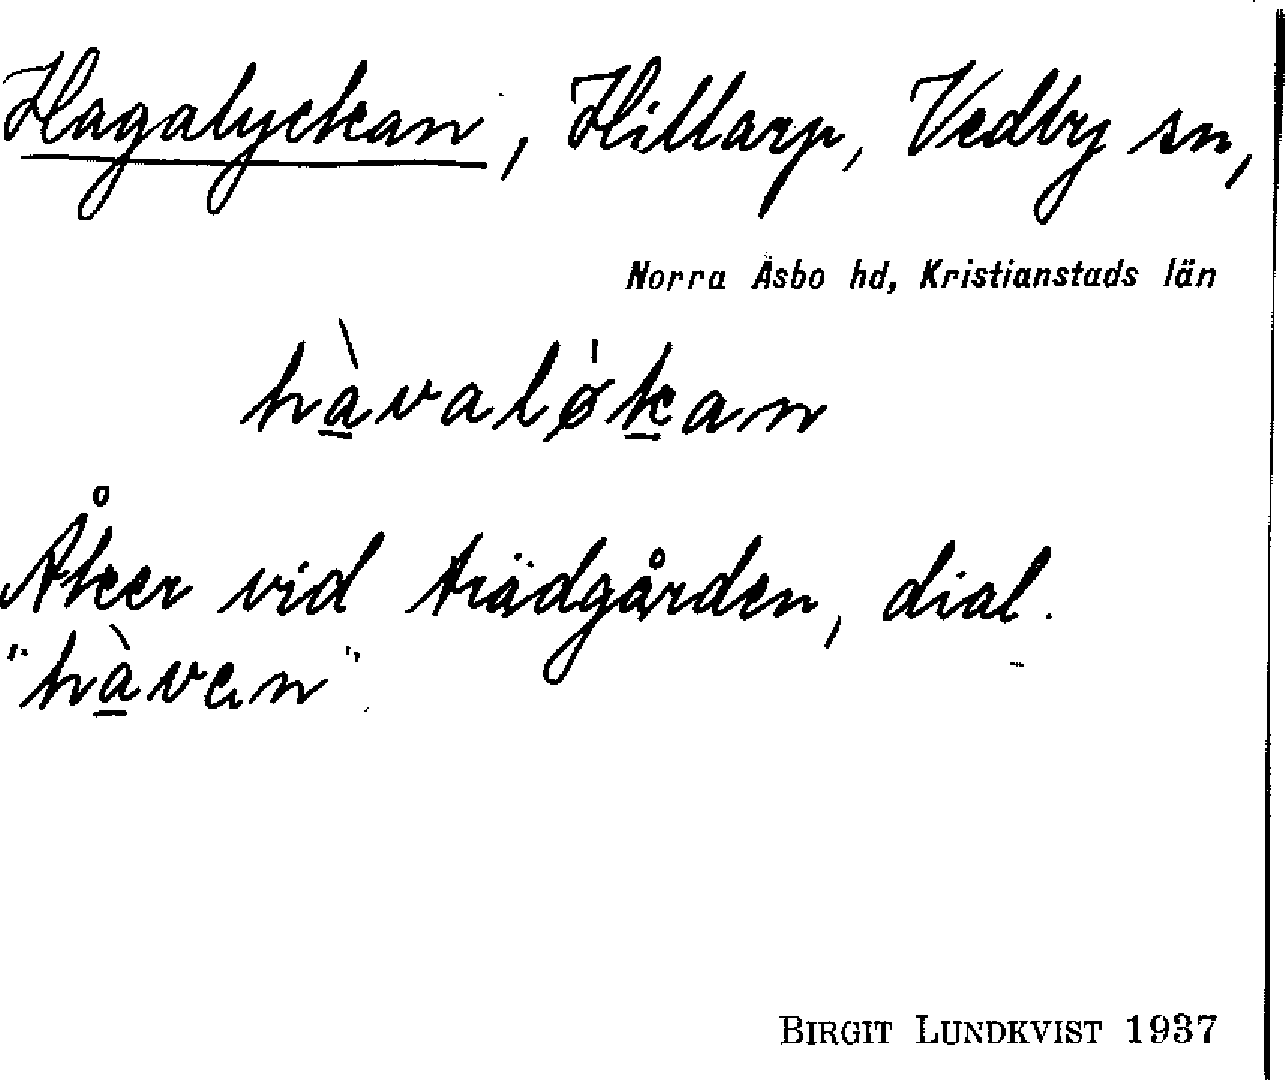 Hagalyckan, Hillarp, Vedby sn,
Norra Åsbo hd, Kristianstads län
hàvaløkan
Åker vid trädgården, dial.
"hàven"
BIRGIT LUNDKVIST 1937